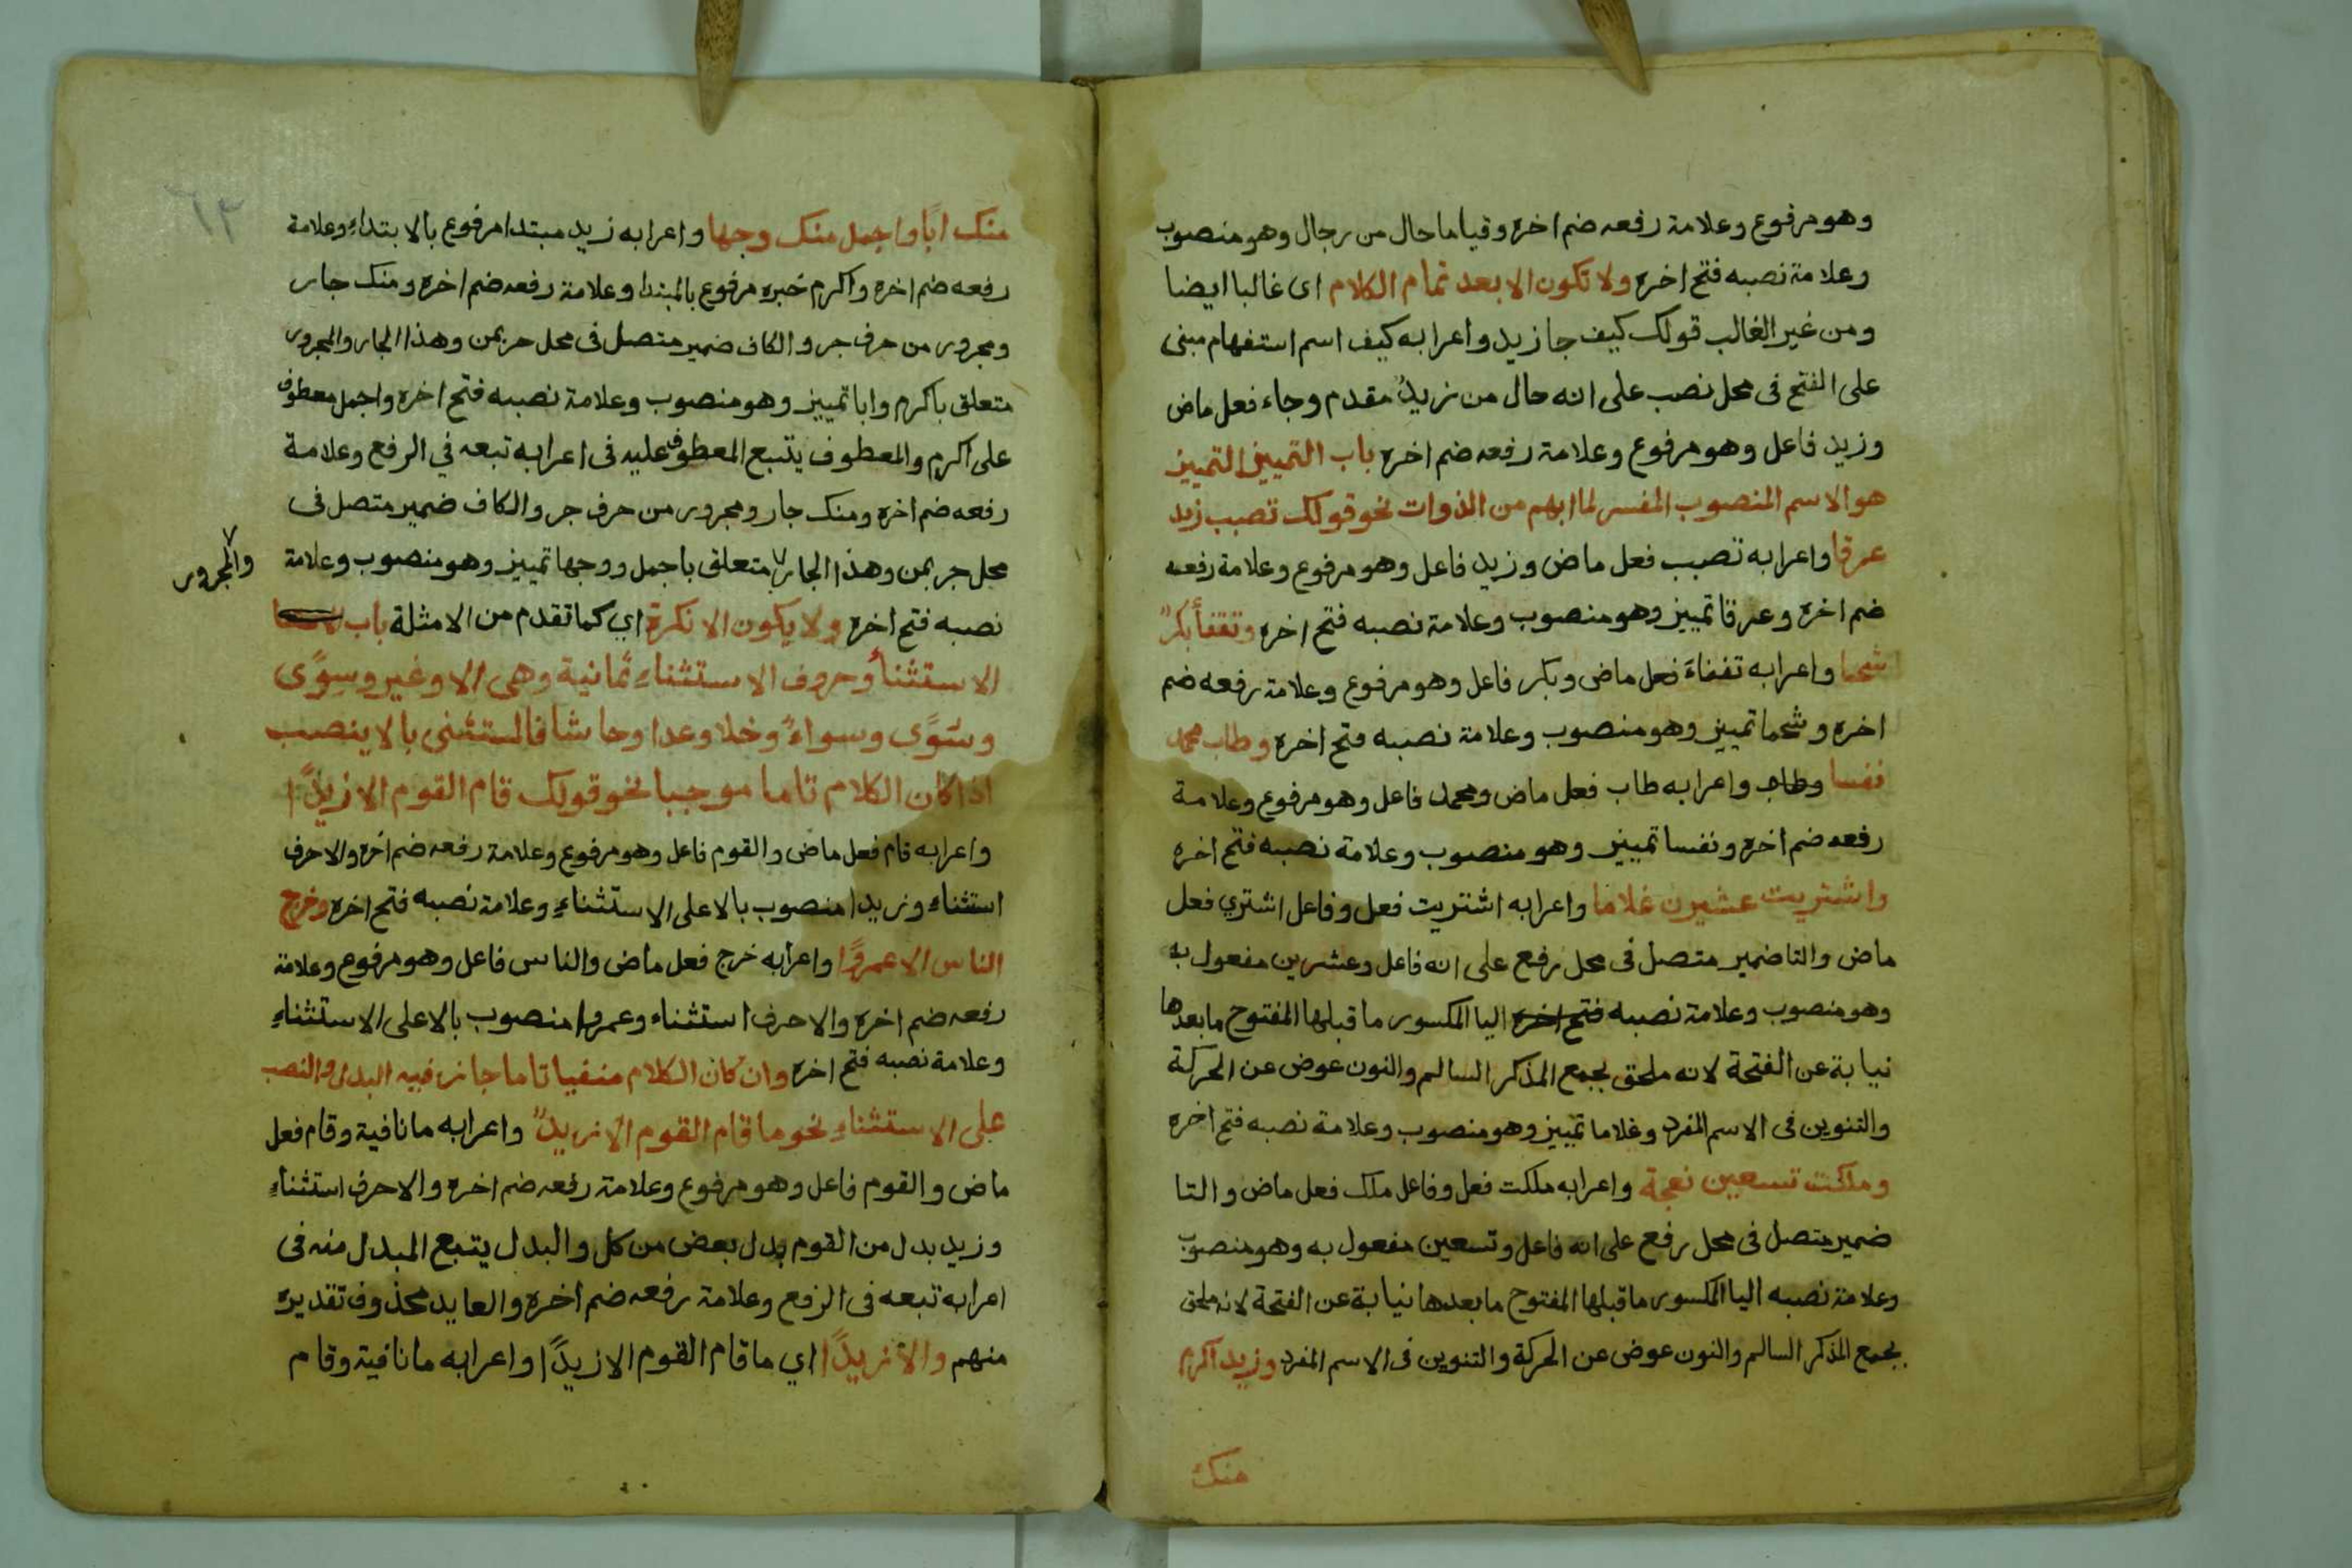 وهو مرفوع وعلامة رفعه ضم اخره وقياما حال من رجال وهو منصوب
وعلامة نصبه فتح اخره ولا تكون الا بعد تمام الكلام اى غالبا ايضا
ومن غير الغالب قولك كيف جا زيد واعرابه كيف اسم استفهام مبنى
على الفتح فى محل نصب على انه حال من زيدٌ مقدم وجاء فعل ماض
وزيد فاعل وهو مرفوع وعلامة رفعه ضم اخره باب التمييز التمييز
هو الاسم المنصوب المفسر لما ابهم من الذوات نحو قولك تصبب زيد
عرقا واعرابه تصبب فعل ماض وزيد فاعل وهو مرفوع وعلامة رفعه
ضم اخره وعرقا تمييز وهو منصوب وعلامة نصبه فتح اخره وتفقأ بكرٌ
شحما واعرابه تفقاءَ فعل ماض وبكر فاعل وهو مرفوع وعلامة رفعه ضم
اخره وشحما تمييز وهو منصوب وعلامة نصبه فتح اخره وطاب محمد
نفسا وطاب واعرابه طاب فعل ماض ومحمد فاعل وهو مرفوع وعلامة
رفعه ضم اخره ونفسا تمييز وهو منصوب وعلامة نصبه فتح اخره
واشتريت عشرين غلاما واعرابه اشتريت فعل وفاعل اشتري فعل
ماض والتا ضمير متصل فى محل رفع على انه فاعل وعشرين مفعول به
وهو منصوب وعلامة نصبه فتح اخره اليا المكسور ما قبلها المفتوح ما بعدها
نيابة عن الفتحة لانه ملحق بجمع المذكر السالم والنون عوض عن الحركة
والتنوين فى الاسم المفرد وغلاما تمييز وهو منصوب وعلامة نصبه فتح اخره
وملكت تسعين نعجة واعرابه ملكت فعل وفاعل ملك فعل ماض والتا
ضمير متصل فى محل رفع على انه فاعل وتسعين مفعول به وهو منصوب
وعلامة نصبه اليا المكسور ما قبلها المفتوح ما بعدها نيابة عن الفتحة لانه ملحق
بجمع المذكر السالم والنون عوض عن الحركة والتنوين فى الاسم المفرد وزيد اكرم
منك
٦٣
منك ابًا واجمل منك وجها واعرابه زيد مبتدا مرفوع بالابتداءِ وعلامة
رفعه ضم اخره واكرم خبره مرفوع بالمبتدا وعلامة رفعه ضم اخره ومنك جار
ومجرور من حرف جر والكاف ضمير متصل فى محل جر بمن وهذا الجار والمجرور
متعلق باكرم وابا تمييز وهو منصوب وعلامة نصبه فتح اخره واجمل معطوف
على اكرم والمعطوف يتبع المعطوف عليه فى اعرابه تبعه في الرفع وعلامة
رفعه ضم اخره ومنك جار ومجرور من حرف جر والكاف ضمير متصل فى
محل جر بمن وهذا الجار متعلق باجمل ووجها تمييز وهو منصوب وعلامة
والمجرور
نصبه فتح اخره ولا يكون الا نكرة اي كما تقدم من الامثلة باب
الاستثناءُ وحروف الاستثناءِ ثمانية وهى الا وغير وسِوًى
وسُوًى وسواءٌ وخلا وعدا وحاشا فالمستثنى بالا ينصب
اذا كان الكلام تاما موجبا نحو قولك قام القوم الا زيدًا
واعرابه قام فعل ماض والقوم فاعل وهو مرفوع وعلامة رفعه ضم اخره والا حرف
استثناءِ وزيدا منصوب بالا على الاستثناءِ وعلامة نصبه فتح اخره وخرج
الناس الا عمروًا واعرابه خرج فعل ماض والناس فاعل وهو مرفوع وعلامة
رفعه ضم اخره والا حرف استثناء وعمروا منصوب بالا على الاستثناءِ
وعلامة نصبه فتح اخره وان كان الكلام منفيا تاما جاز فيه البدل والنصب
على الاستثناءِ نحو ما قام القوم الا زيدٌ واعرابه ما نافية وقام فعل
ماض والقوم فاعل وهو مرفوع وعلامة رفعه ضم اخره والا حرف استثناءِ
وزيد بدل من القوم بدل بعض من كل والبدل يتبع المبدل منه فى
اعرابه تبعه فى الرفع وعلامة رفعه ضم اخره والعايد محذوف تقديره
منهم والا زيدًا اي ما قام القوم الا زيدًا واعرابه ما نافية وقام